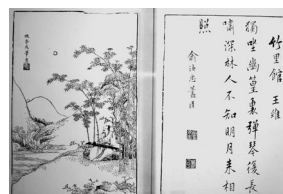 竹里館 王維
獨坐幽篁裏彈琴復長
嘯深林人不知明月來相
照